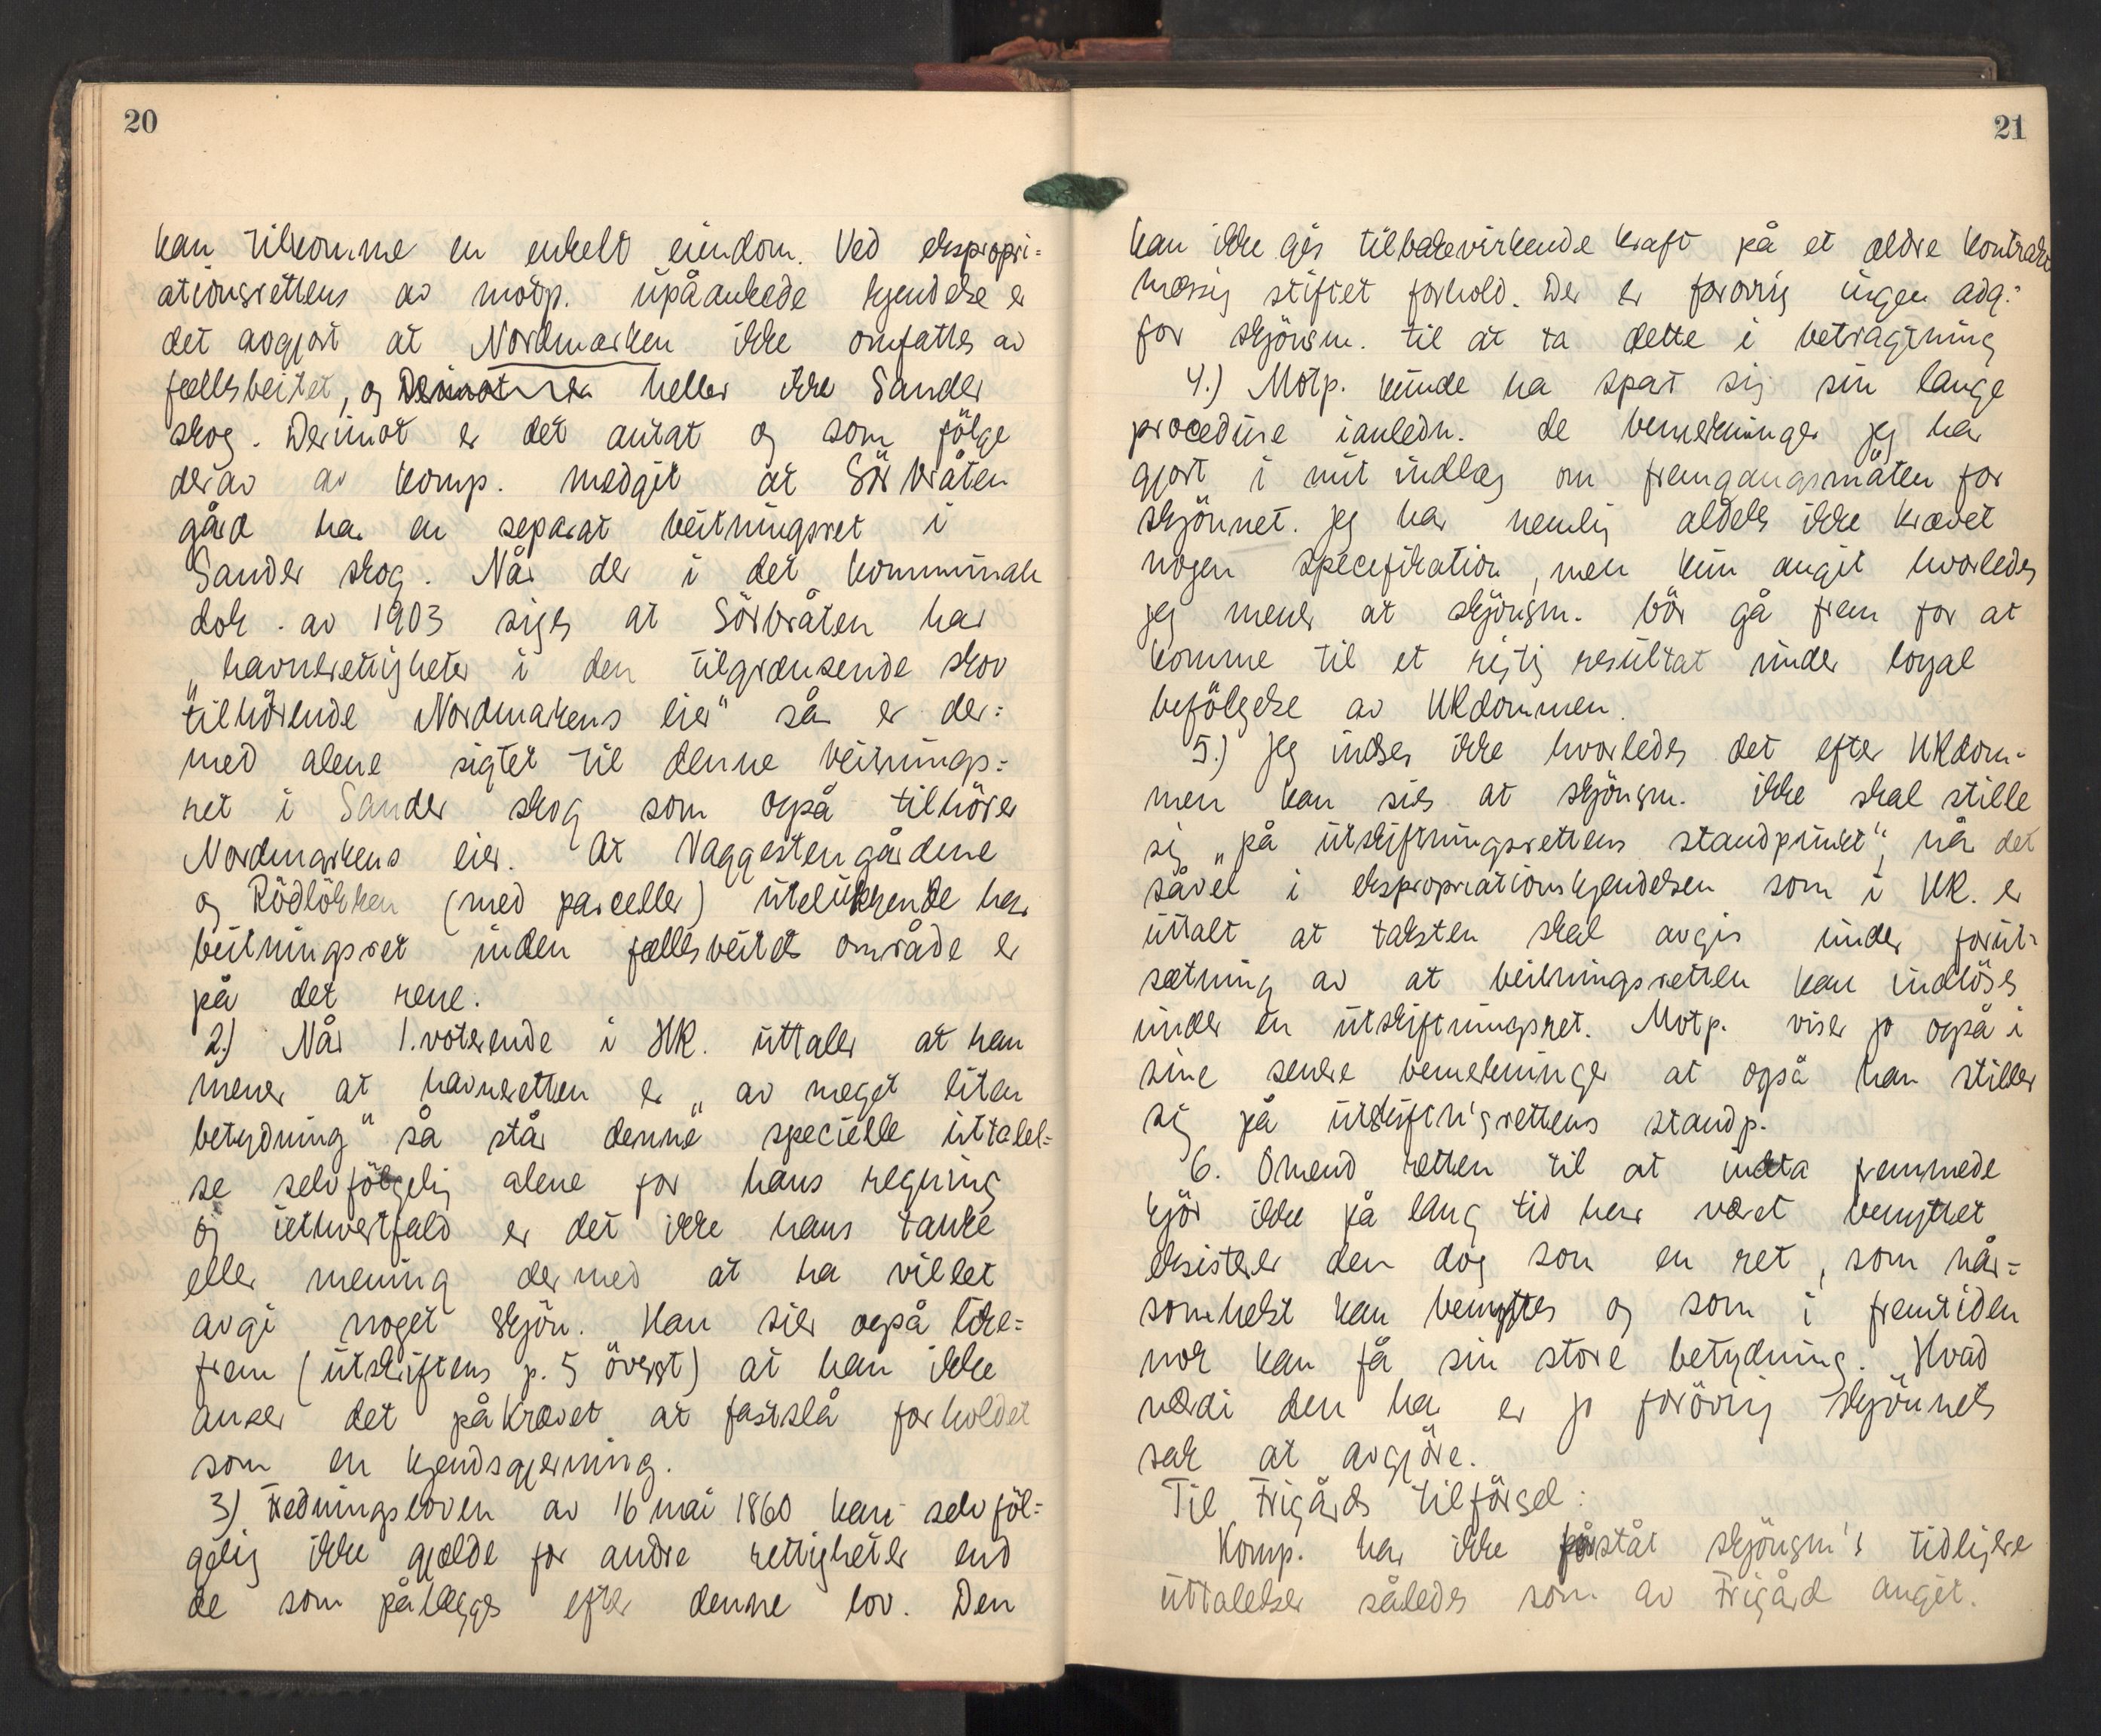 20
kan tilkomme en enkelt eiendom. Ved ekspropri=
ationsrettens av motp. upåankede kjendelse er
det avgjort at Nordmarken ikke omfattes av
fællesbeitet, og heller ikke Sander
skog. Derimot er det antat og som følge
derav av komp. medgit at Sör bråten
gård har en separat beitningsret i
Sander skog. Når der i det kommunale
dok. av 1903 siges at Sörbråten har
„havnerettigheter i den tilgrænsende skov
"tilhörende Nordmarkens eier" så er der=
med alene sigtet til denne beitnings=
ret i Sander skog som også tilhörer
Nordmarkens eier. At Vaggestengårdene
og Rödlökken (med parceller) utelukkende har
beitningsret inden fællesbeitets område er
på det rene.
2.) Når 1.voterende i HR. uttaler at han
mener at havneretten er „av meget liten
betydning" så står denne specielle uttalel=
se selvfölgelig alene for hans regning
og iethvertfald er det ikke hans tanke
eller mening dermed at ha villet
avgi noget skjön. Han sier også like=
frem (utskriftens p. 5 överst) at han ikke
anser det påkrævet at fastslå forholdet
som en kjendsgjerning.
3) Fredningsloven av 16 mai 1860 kan selvföl=
gelig ikke gjælde for andre rettigheter end
de som pålægges efter denne lov. Den
21
kan ikke gis tilbakevirkende kraft på et ældre kontrakt
mæssig stiftet forhold. Der er forövrig ingen adg.
for skjönsm. til at ta dette i betragtning
4.) Motp. kunde ha spart sig sin lange
procedure ianledn. de bemerkninger jeg har
gjort i mit indlæg om fremgangsmåten for
skjönnet. Jeg har nemlig aldeles ikke krævet
nogen specifikation, men kun angit hvorledes
jeg mener at skjönsm. bör gå frem for at
komme til et rigtig resultat under loyal
befölgelse av HRdommen.
5.) Jeg indser ikke hvorledes det efter HRdom=
men kan sies at skjönsm. ikke skal stille
sig „på utskiftningsrettens standpunkt", når det
såvel i ekspropriationskjendelsen som i HR. er
uttalt at taksten skal avgis under forut=
sætning av at beitningsretten kan indlöses
under en utskiftningsret. Motp. viser jo også i
sine senere bemerkninger at også han stiller
sig på utskiftn'gsrettens standp.
6. Omend retten til at indta fremmede
kjör ikke på lang tid har været benyttet
eksisterer den dog som en ret, som når=
somhelst kan benyttes og som i fremtiden
nok kan få sin store betydning. Hvad
værdi den har er jo forövrig skjönnets
sak at avgjöre.
Til Frigårds tilförsel:
Komp. har ikke påståt skjönsm's tidligere
uttalelser således som av Frigård angit.